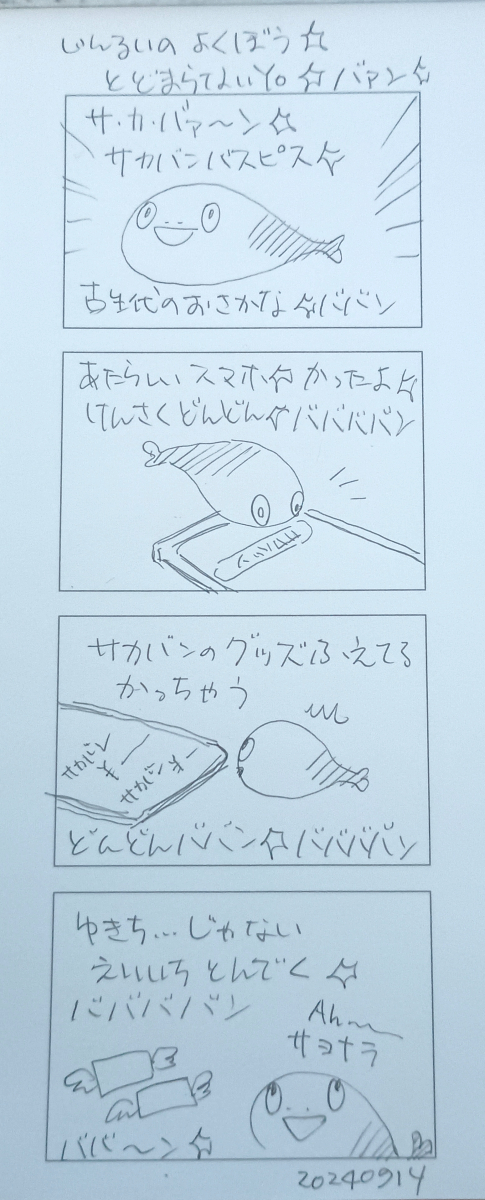 じんるいの よくぼう☆
とどまらてないYo ☆バァン☆
サ・カ・バァ〜ン☆
サカバンバスピス☆
古生代のおさかな☆ババン
あたらしいスマホ☆かったよ☆
けんさくどんどん☆バババババン
サカバンのグッズふえてる
かっちゃう
サカバン
キー
サカバンキー
どんどんババン☆ババババン
ゆきち…じゃない
えいいち とんでく ☆
バババババン
Ah〜
サヨナラ
ババ〜ン☆
20240914